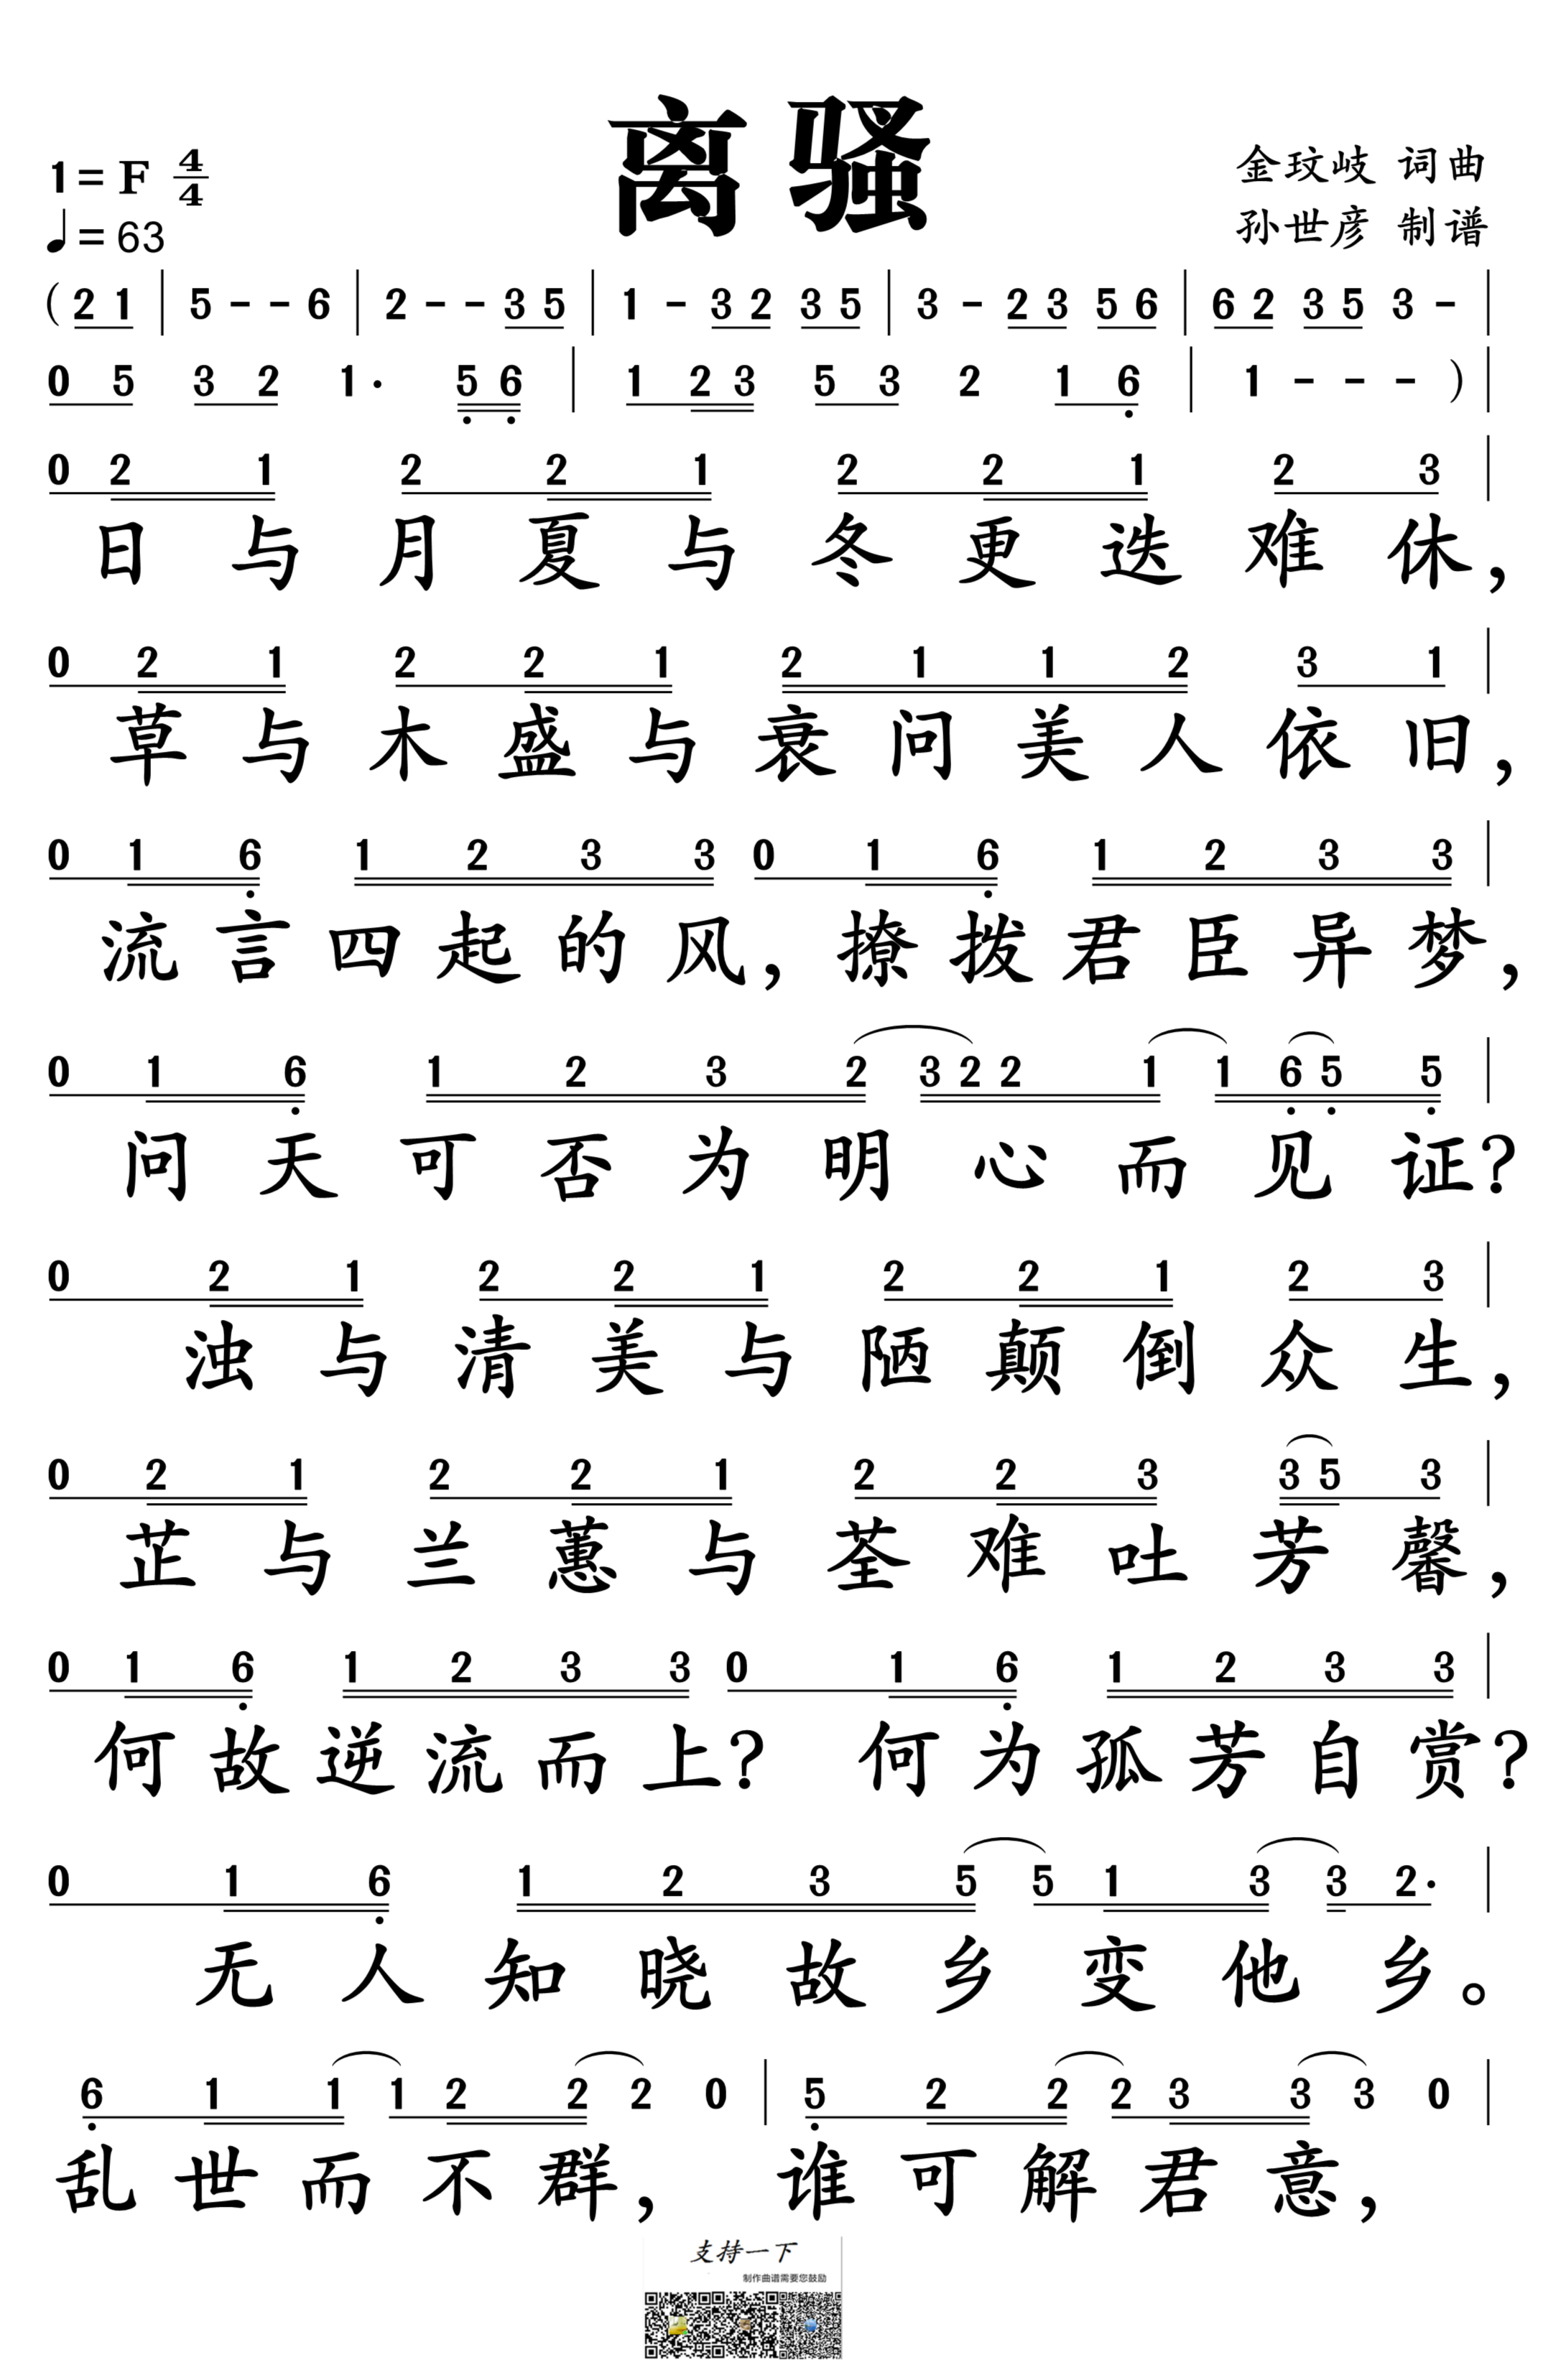 离骚
1=F 4/4
♩=63
金玟岐 词曲
孙世彦 制谱
(2 1 | 5 - - 6 | 2 - - 3 5 | 1 - 3 2 3 5 | 3 - 2 3 5 6 | 6 2 3 5 3 - |
0 5 3 2 1· 5 6 | 1 2 3 5 3 2 1 6 | 1 - - - ) |
0 2 1 2 2 1 2 2 1 2 3 |
日与月夏与冬更迭难休，
0 2 1 2 2 1 2 1 1 2 3 1 |
草与木盛与衰问美人依旧，
0 1 6 1 2 3 3 0 1 6 1 2 3 3 |
流言四起的风，撩拨君臣异梦，
0 1 6 1 2 3 2 3 2 2 1 1 6 5 5 |
问天可否为明心而见证？
0 2 1 2 2 1 2 2 1 2 3 |
浊与清美与陋颠倒众生，
0 2 1 2 2 1 2 2 3 3 5 3 |
芷与兰蕙与荃难吐芳馨，
0 1 6 1 2 3 3 0 1 6 1 2 3 3 |
何故逆流而上？何为孤芳自赏？
0 1 6 1 2 3 5 5 1 3 3 2· |
无人知晓故乡变他乡。
6 1 1 1 2 2 2 0 | 5 2 2 2 3 3 3 0 |
乱世而不群，谁可解君意，
支持一下
制作曲谱需要您鼓励